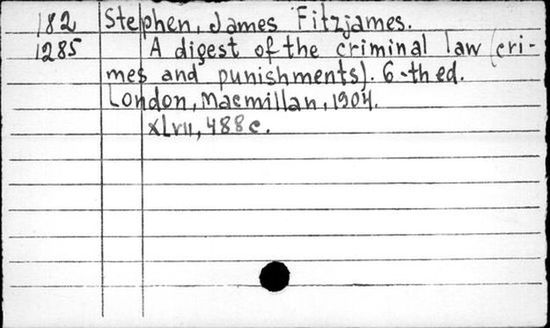 182 Stephen, James Fitzjames.
1285 A digest of the criminal law (cri-
mes and punishments). 6-th ed.
London, Macmillan, 1904.
XLVII, 488 c.